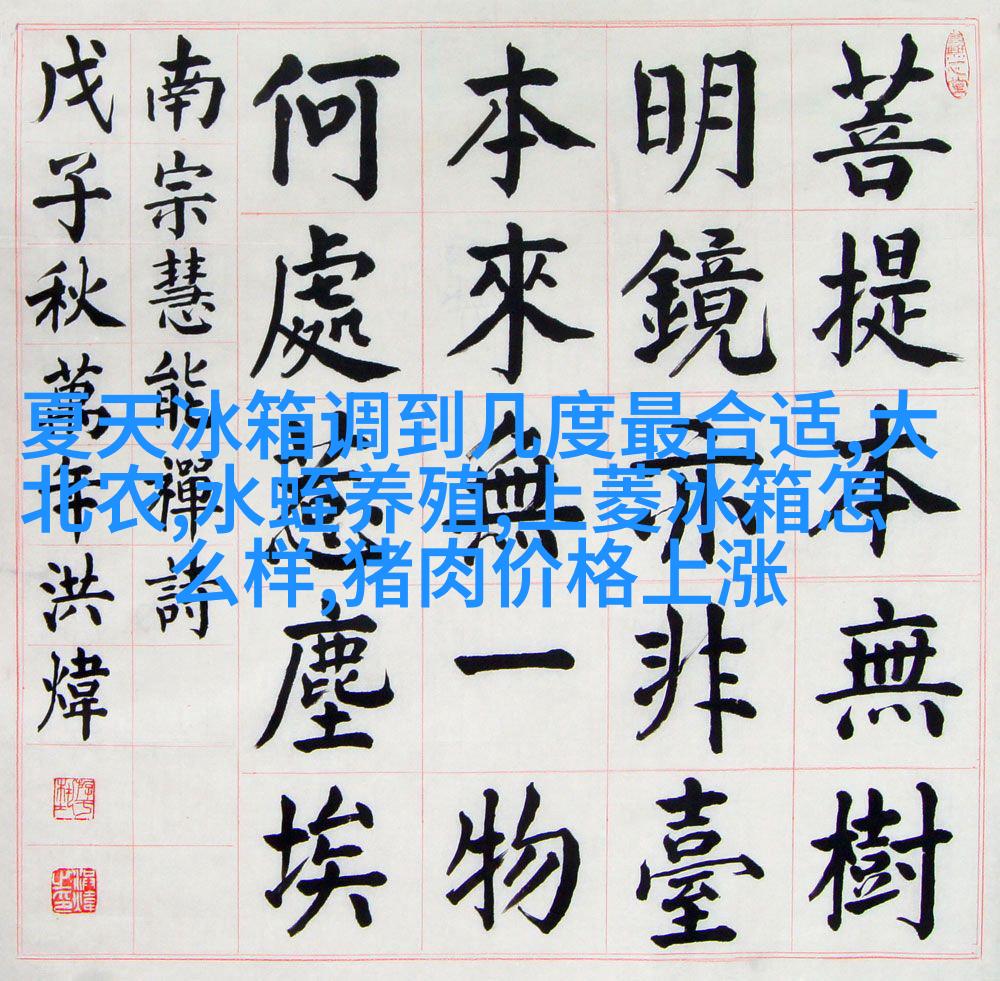 菩提本無樹
明鏡亦非臺
本來無一物
何處惹塵埃
南宗慧能禪詩
戊子秋萬年洪煒
夏天冰箱调到几度最合适,大
北农,水蛭养殖,上菱冰箱怎
么样,猪肉价格上涨